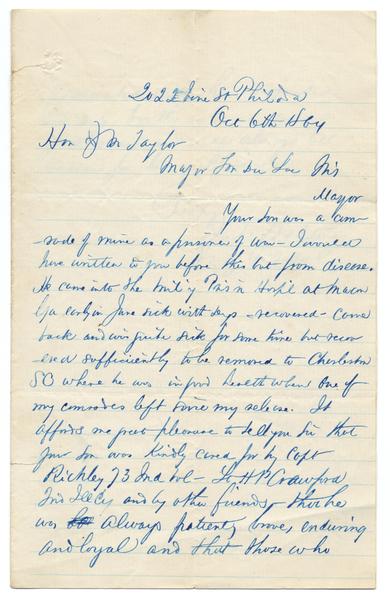 2022 Pine St Philada
Oct 6th 1864
Hon J M Taylor
Mayor Fon Du Lac Wis
Mayor
Your Son was a com
-rade of mine as a prisoner of war - I would
have written to you before this but from disease.
He came into the Military Pris'n Hospl at Macon
Ga early in June sick with dys - recovered - came
back and was quite sick for some time but recov
-ered sufficiently to be removed to Charleston
SC where he was in good health when one of
my comrades left since my release. It
affords me great pleasure to tell you Sir that
your Son was kindly cared for by Capt
Richley 73 Ind Vol - Lt H P Crawford
2nd Ill Cy and by other friends, that he
was always patient, brave, enduring
and loyal and that those who